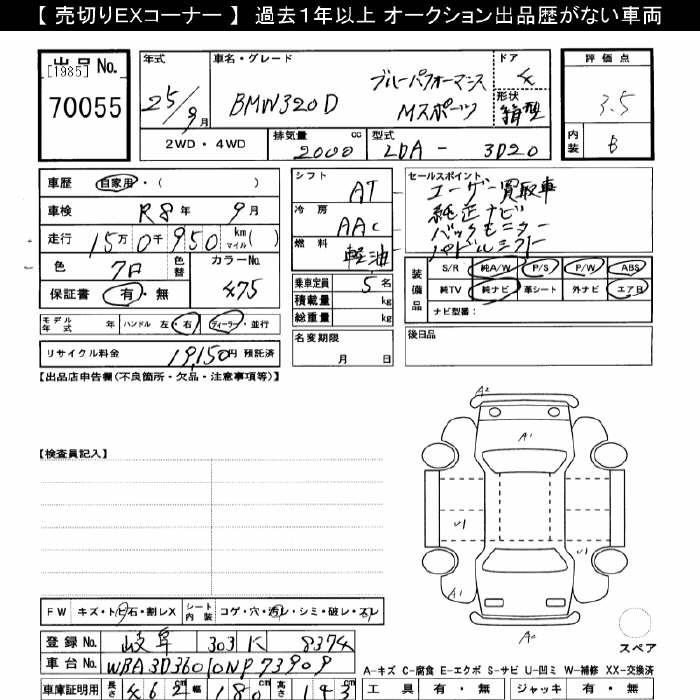 【 売切りEXコーナー 】 過去1年以上 オークション出品歴がない車両
出品 No. [1985]
70055
年式 25/9月
車名・グレード BMW320D ブルーパフォーマンス Mスポーツ
ドア 4
形状 箱型
評価点 3.5
内装 B
2WD・4WD 排気量 2000 cc 型式 LDA - 3D20
車歴 自家用・( )
車検 R8年 9月
走行 15万0千950 km マイル( )
色 クロ 色替 カラーNo. 475
保証書 有・無
シフト AT
冷房 AAC
燃料 軽油
乗車定員 5名
積載量 kg
総重量 kg
セールスポイント
ユーザー買取車
純正ナビ
バックモニター
パドルシフト
装備品 S/R 純A/W P/S P/W ABS
純TV 純ナビ 革シート 外ナビ エアB
ナビ型番:
モデル年式 年 ハンドル 左・右 ディーラー・並行
名変期限 月 日
後日品
リサイクル料金 19,150円 預託済
【出品店申告欄(不良箇所・欠品・注意事項等)】
【検査員記入】
A2
A1
U1
U1
A1
A1
A2
スペア
FW キズ・トビ石・割レX シート内装 コゲ・穴・汚レ・シミ・破レ・スレ
登録 No. 岐阜 303 K 8374
車台 No. WBA3D3601ONP73909
A-キズ C-腐食 E-エクボ S-サビ U-凹ミ W-補修 XX-交換済
車庫証明用 長さ 462cm 幅 180cm 高さ 143cm
工具 有・無 ジャッキ 有・無